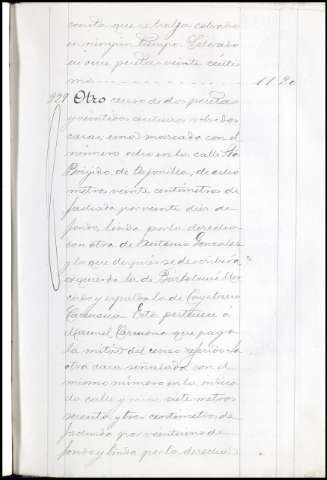 consta que se haya cobrado
en ningun tiempo. Valorado
en once pesetas veinte cénti
mos 11 20
229 Otro censo de dos pesetas
y veintidos centimos sobre dos
casas, una marcada con el
número ocho en la calle
Brigido de, de ocho
metros veinte centímetros de
fachada por veinte diez de
fondo, linda por la derecha
con otra de Antonio Gonzalez
y la que despues se describirá,
izquierda la de Bartolomé Mo
y espalda la de Cayetano
Carmona. Esta pertenece a
Manuel Carmona que paga
la mitad del censo referido. La
otra casa señalada con el
mismo número en la misma
calle y mide siete metros
sesenta y tres centimetros de
fachada por veintiuno de
fondo y linda por la derecha